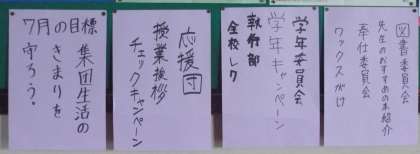 7月の目標
集団生活の
きまりを
守ろう。
応援団
授業挨拶
チェックキャンペーン
学年委員会
学年キャンペーン
執行部
全校レク
図書委員会
先生のおすすめの本紹介
奉仕委員会
ワックスがけ